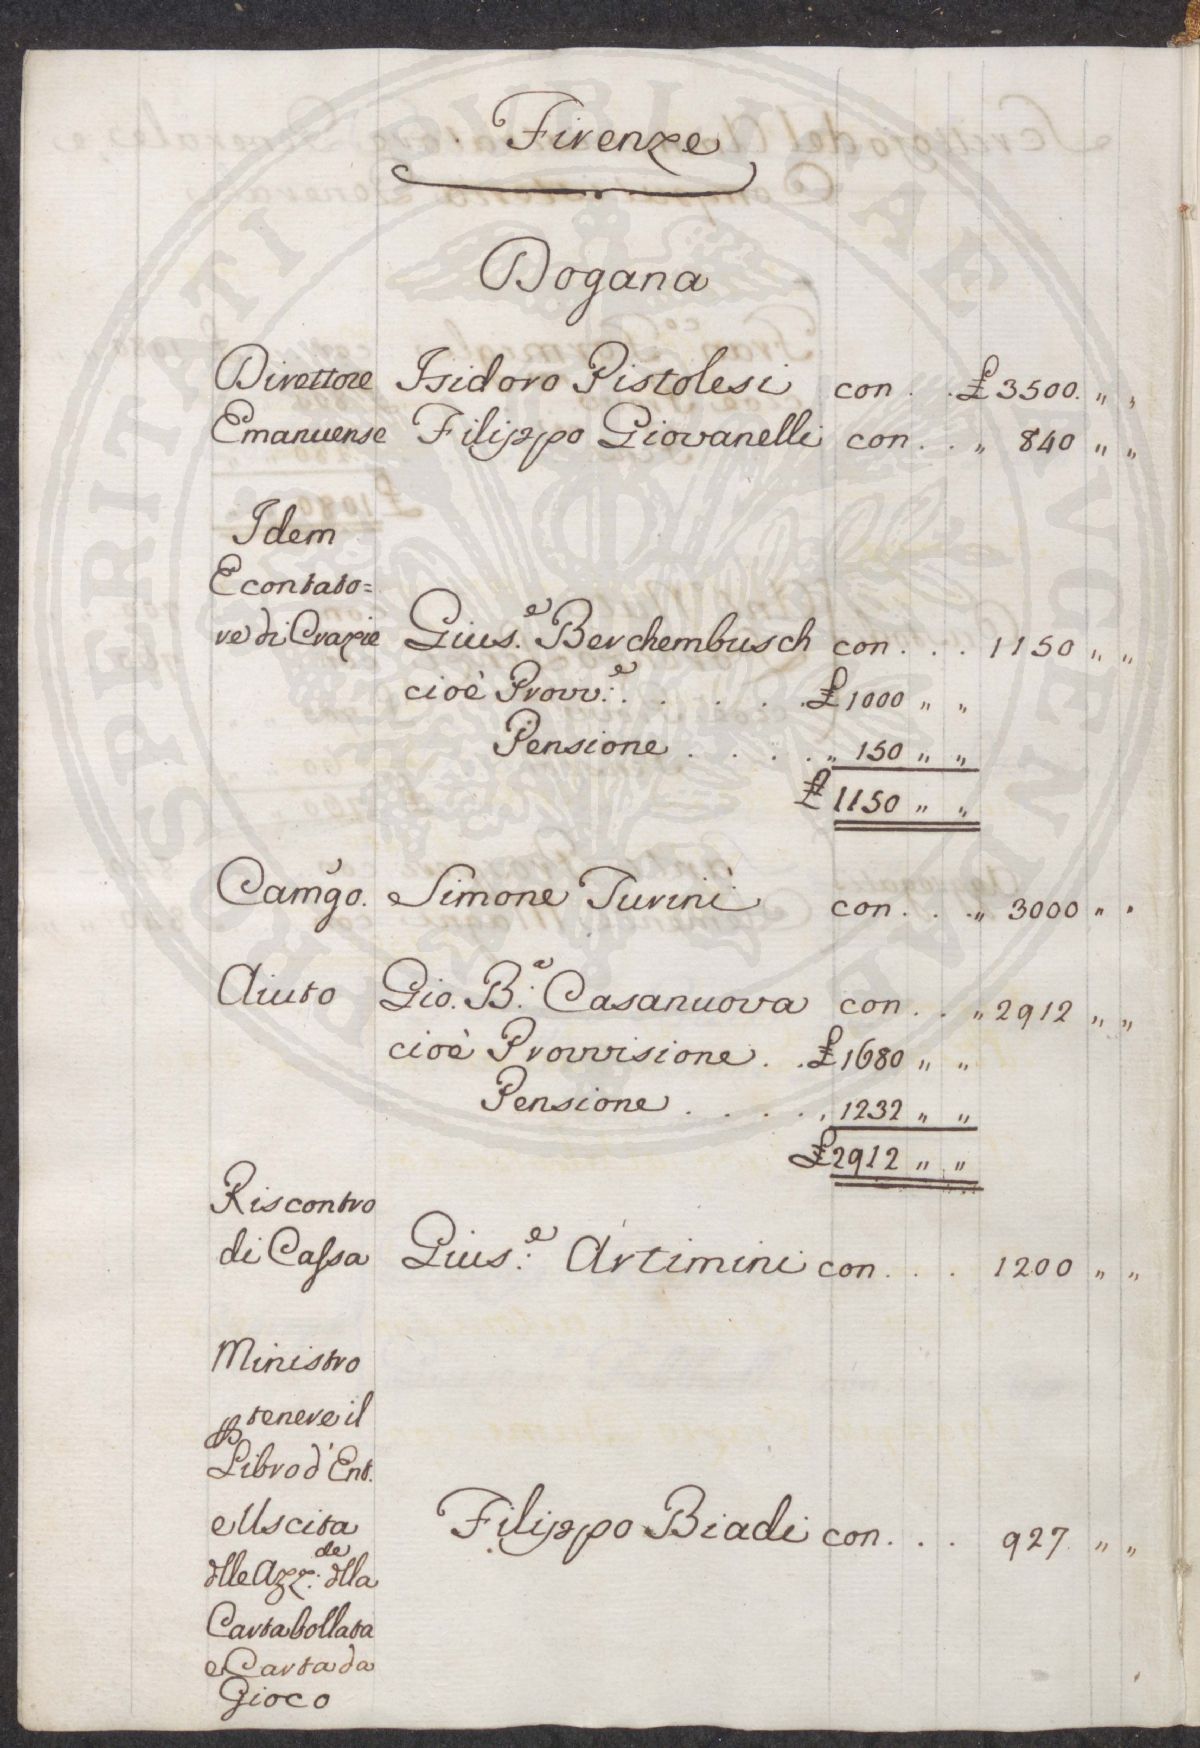 Firenze
Dogana
Direttore Isidoro Pistolesi con . . £ 3500. „ „
Emanuense Filippo Giovanelli con . . „ 840 „ „
Idem
E contato=
re di Crazie Gius.e Berchembusch con . . . 1150 „ „
cioè Provv.e . . . . . £ 1000 „ „
Pensione . . . . „ 150 „ „
£ 1150 „ „
Cam̃go. Simone Turini con . . „ 3000 „ „
Aiuto Gio. B.a Casanuova con . . „ 2912 „ „
cioè Provvisione . . £ 1680 „ „
Pensione . . . . . 1232 „ „
£ 2912 „ „
Riscontro
di Cassa Gius.e Artimini con . . . 1200 „ „
Ministro
p tenere il
Libro d'Ent.
e Uscita Filippo Biadi con . . . 927 „ „
dlle Azz.de dlla
Carta bollata
e Carta da
Gioco